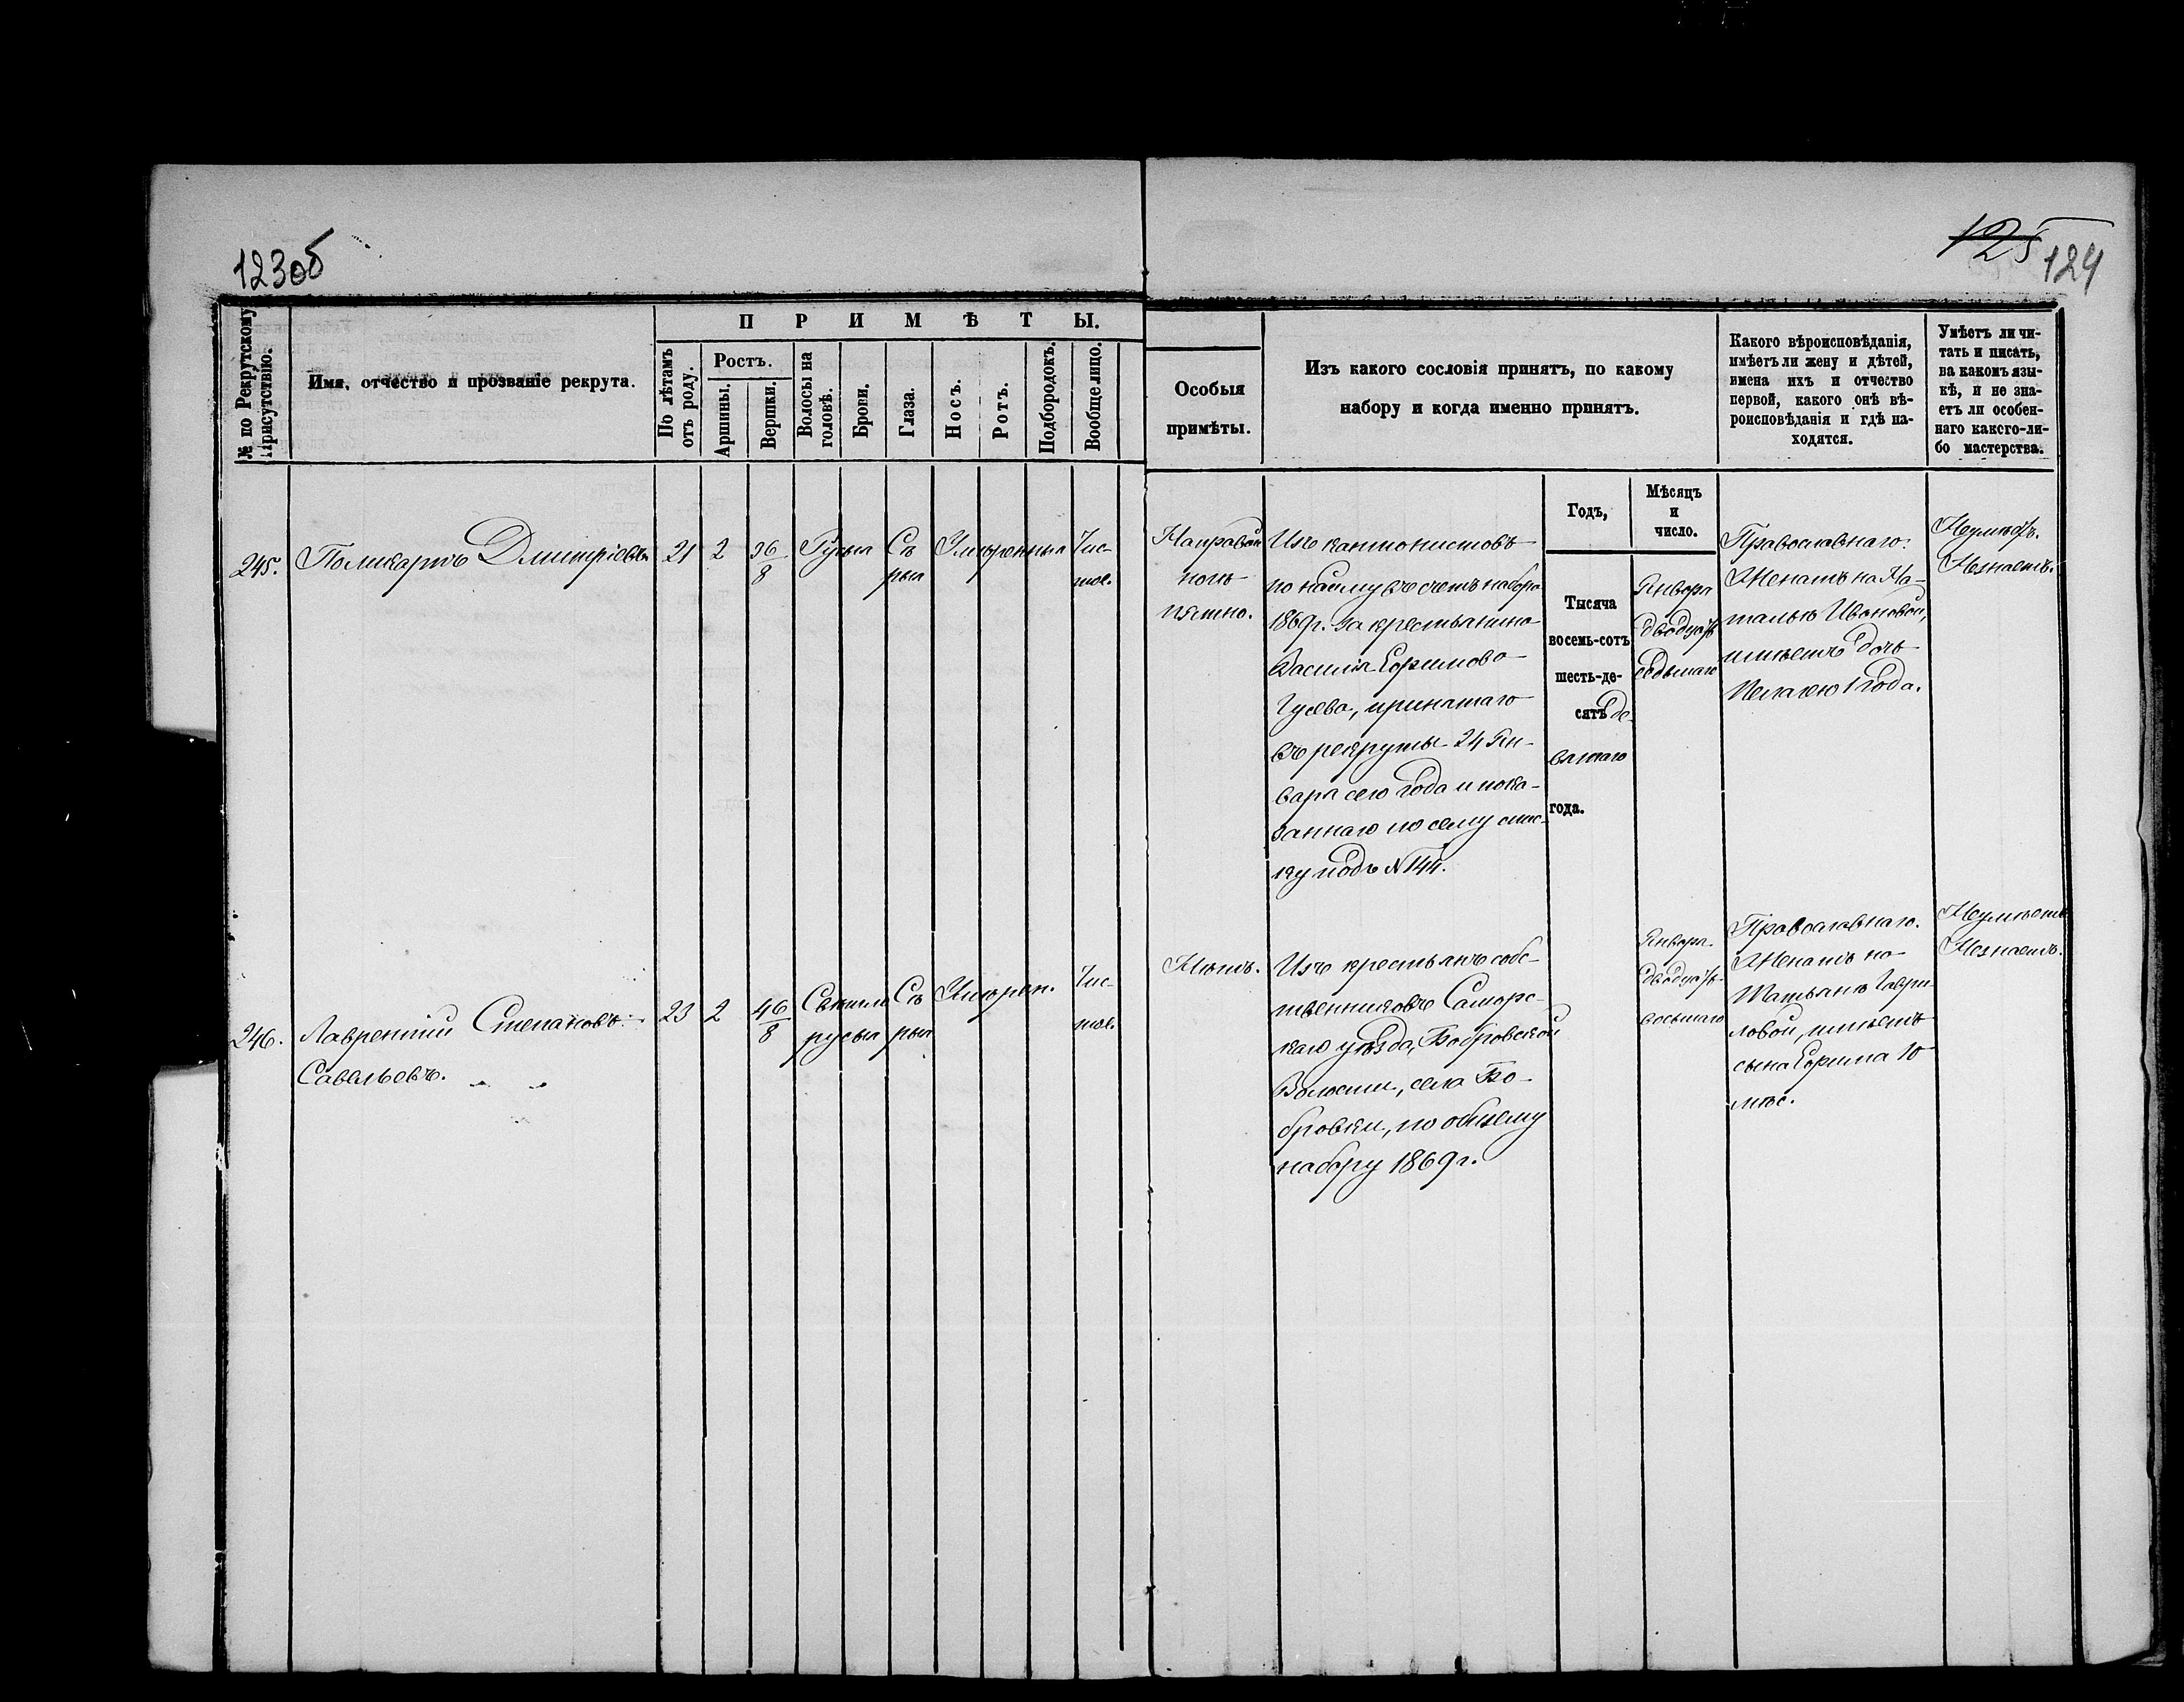 123об
125
124
№ по Рекрутскому Присутствію.
Имя, отчество и прозваніе рекрута.
ПРИМѢТЫ.
По лѣтамъ отъ роду.
Ростъ.
Аршины.
Вершки.
Волосы на головѣ.
Брови.
Глаза.
Носъ.
Ротъ.
Подбородокъ.
Вообще лицо.
Особыя
примѣты.
Изъ какого сословія принятъ, по какому
набору и когда именно принятъ.
Какого вѣроисповѣданія,
имѣетъ ли жену и дѣтей,
имена ихъ и отчество
первой, какого онѣ вѣ-
роисповѣданія и гдѣ на-
ходятся.
Умѣетъ ли чи-
тать и писать,
на какомъ язы-
кѣ, и не зна-
етъ ли особен-
наго какого-ли-
бо мастерства.
Годъ,
Мѣсяцъ
и
число.
245.
Поликарпъ Дмитріевъ
21
2
36/8
Русыя
Сѣ
рыя
Умѣренныя
Чис-
тое.
На правой
ногѣ
пятно.
Изъ кантонистовъ
по найму въ счетъ набора
1869г. за крестьянина
Василія Ефимова
Гусева, принятаго
въ рекруты 24 Ян-
варя сего года и пока-
заннаго по сему спис-
ку подъ №144.
Тысяча
восемь-сотъ
шесть-де-
сятъ де-
вятаго
года.
Января
двадцать
седьмаго
Православнаго.
Женатъ на На-
тальѣ Ивановой,
имѣетъ дочь
Пелагею 1 года.
Неумѣетъ.
Незнаетъ.
246.
Лаврентій Степановъ
Савельевъ.
23
2
46/8
Свѣтло
русыя
Сѣ
рыя
Умѣрен.
Чис-
тое.
Нѣтъ.
Изъ крестьянъ собс-
твенниковъ Самарс-
каго уѣзда, Бобровской
Волости, села Бо-
бровки, по общему
набору 1869г.
Января
двадцать
восьмаго
Православнаго.
Женатъ на
Татьянѣ Гаври-
ловой, имѣетъ
сына Ефима 10
мѣс.
Неумѣетъ
Незнаетъ.